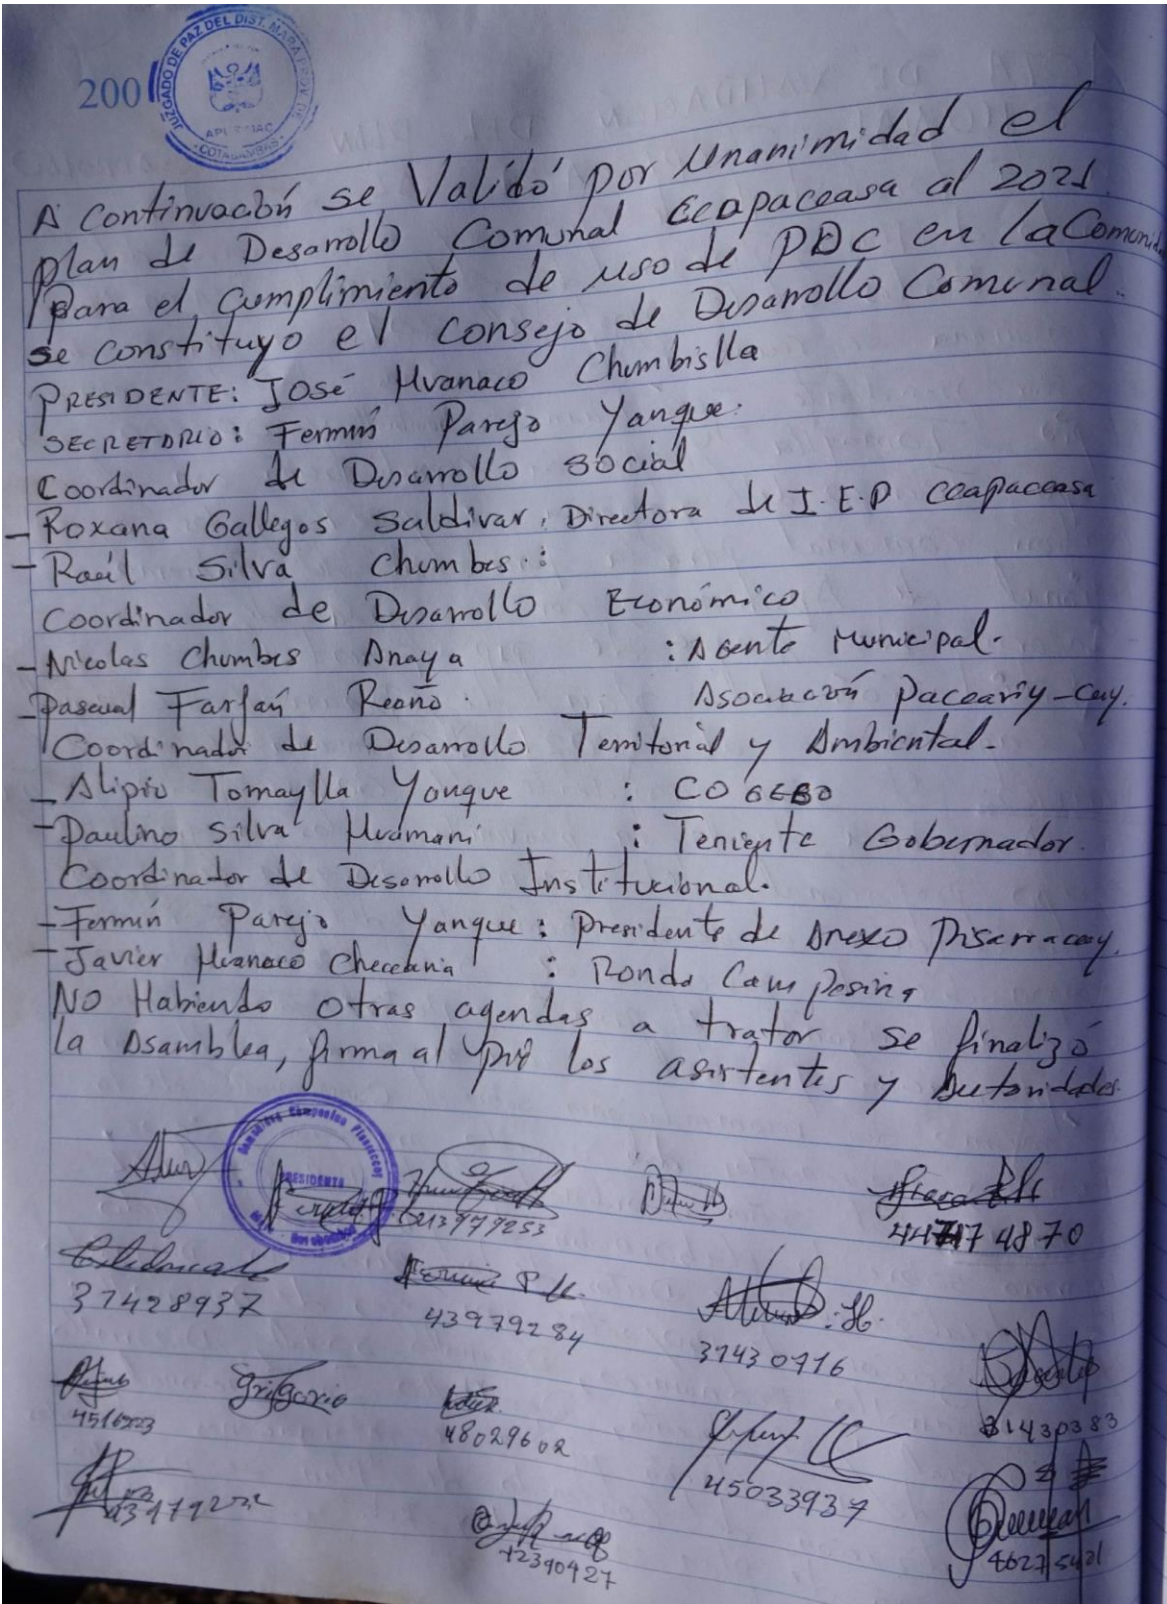 200
JUZGADO DE PAZ DEL DIST. MARA PROV. DE
COTABAMBAS
A continuación se Validó por Unanimidad el
plan de Desarrollo Comunal Ccapaccasa al 2021
para el cumplimiento de uso de PDC en la Comunidad
se constituyo el Consejo de Desarrollo Comunal.
PRESIDENTE: José Huanaco Chumbislla
SECRETARIO: Fermín Parejo Yanque.
Coordinador de Desarrollo social
- Roxana Gallegos Saldivar, Directora de I.E.P Ccapaccasa
- Raúl Silva Chumbes :
Coordinador de Desarrollo Económico
- Nicolas Chumbes Anaya : Agente Municipal.
- Pascual Farfán Reaño. Asociación Paccariy-Cuy.
Coordinador de Desarrollo Territorial y Ambiental.
- Alipio Tomaylla Yanque :
- Paulino Silva Huamani : Teniente Gobernador.
Coordinador de Desarrollo Institucional.
- Fermín Parejo Yanque : Presidente de Anexo Pisarraccay.
- Javier Huanaco Checcania : Ronda Campesina
NO Habiendo otras agendas a tratar se finalizó
la Asamblea, firma al pie los asistentes y Autoridades.
PRESIDENTA
31428937
43979284
31430716
Gregorio
48029602
31430383
45033937